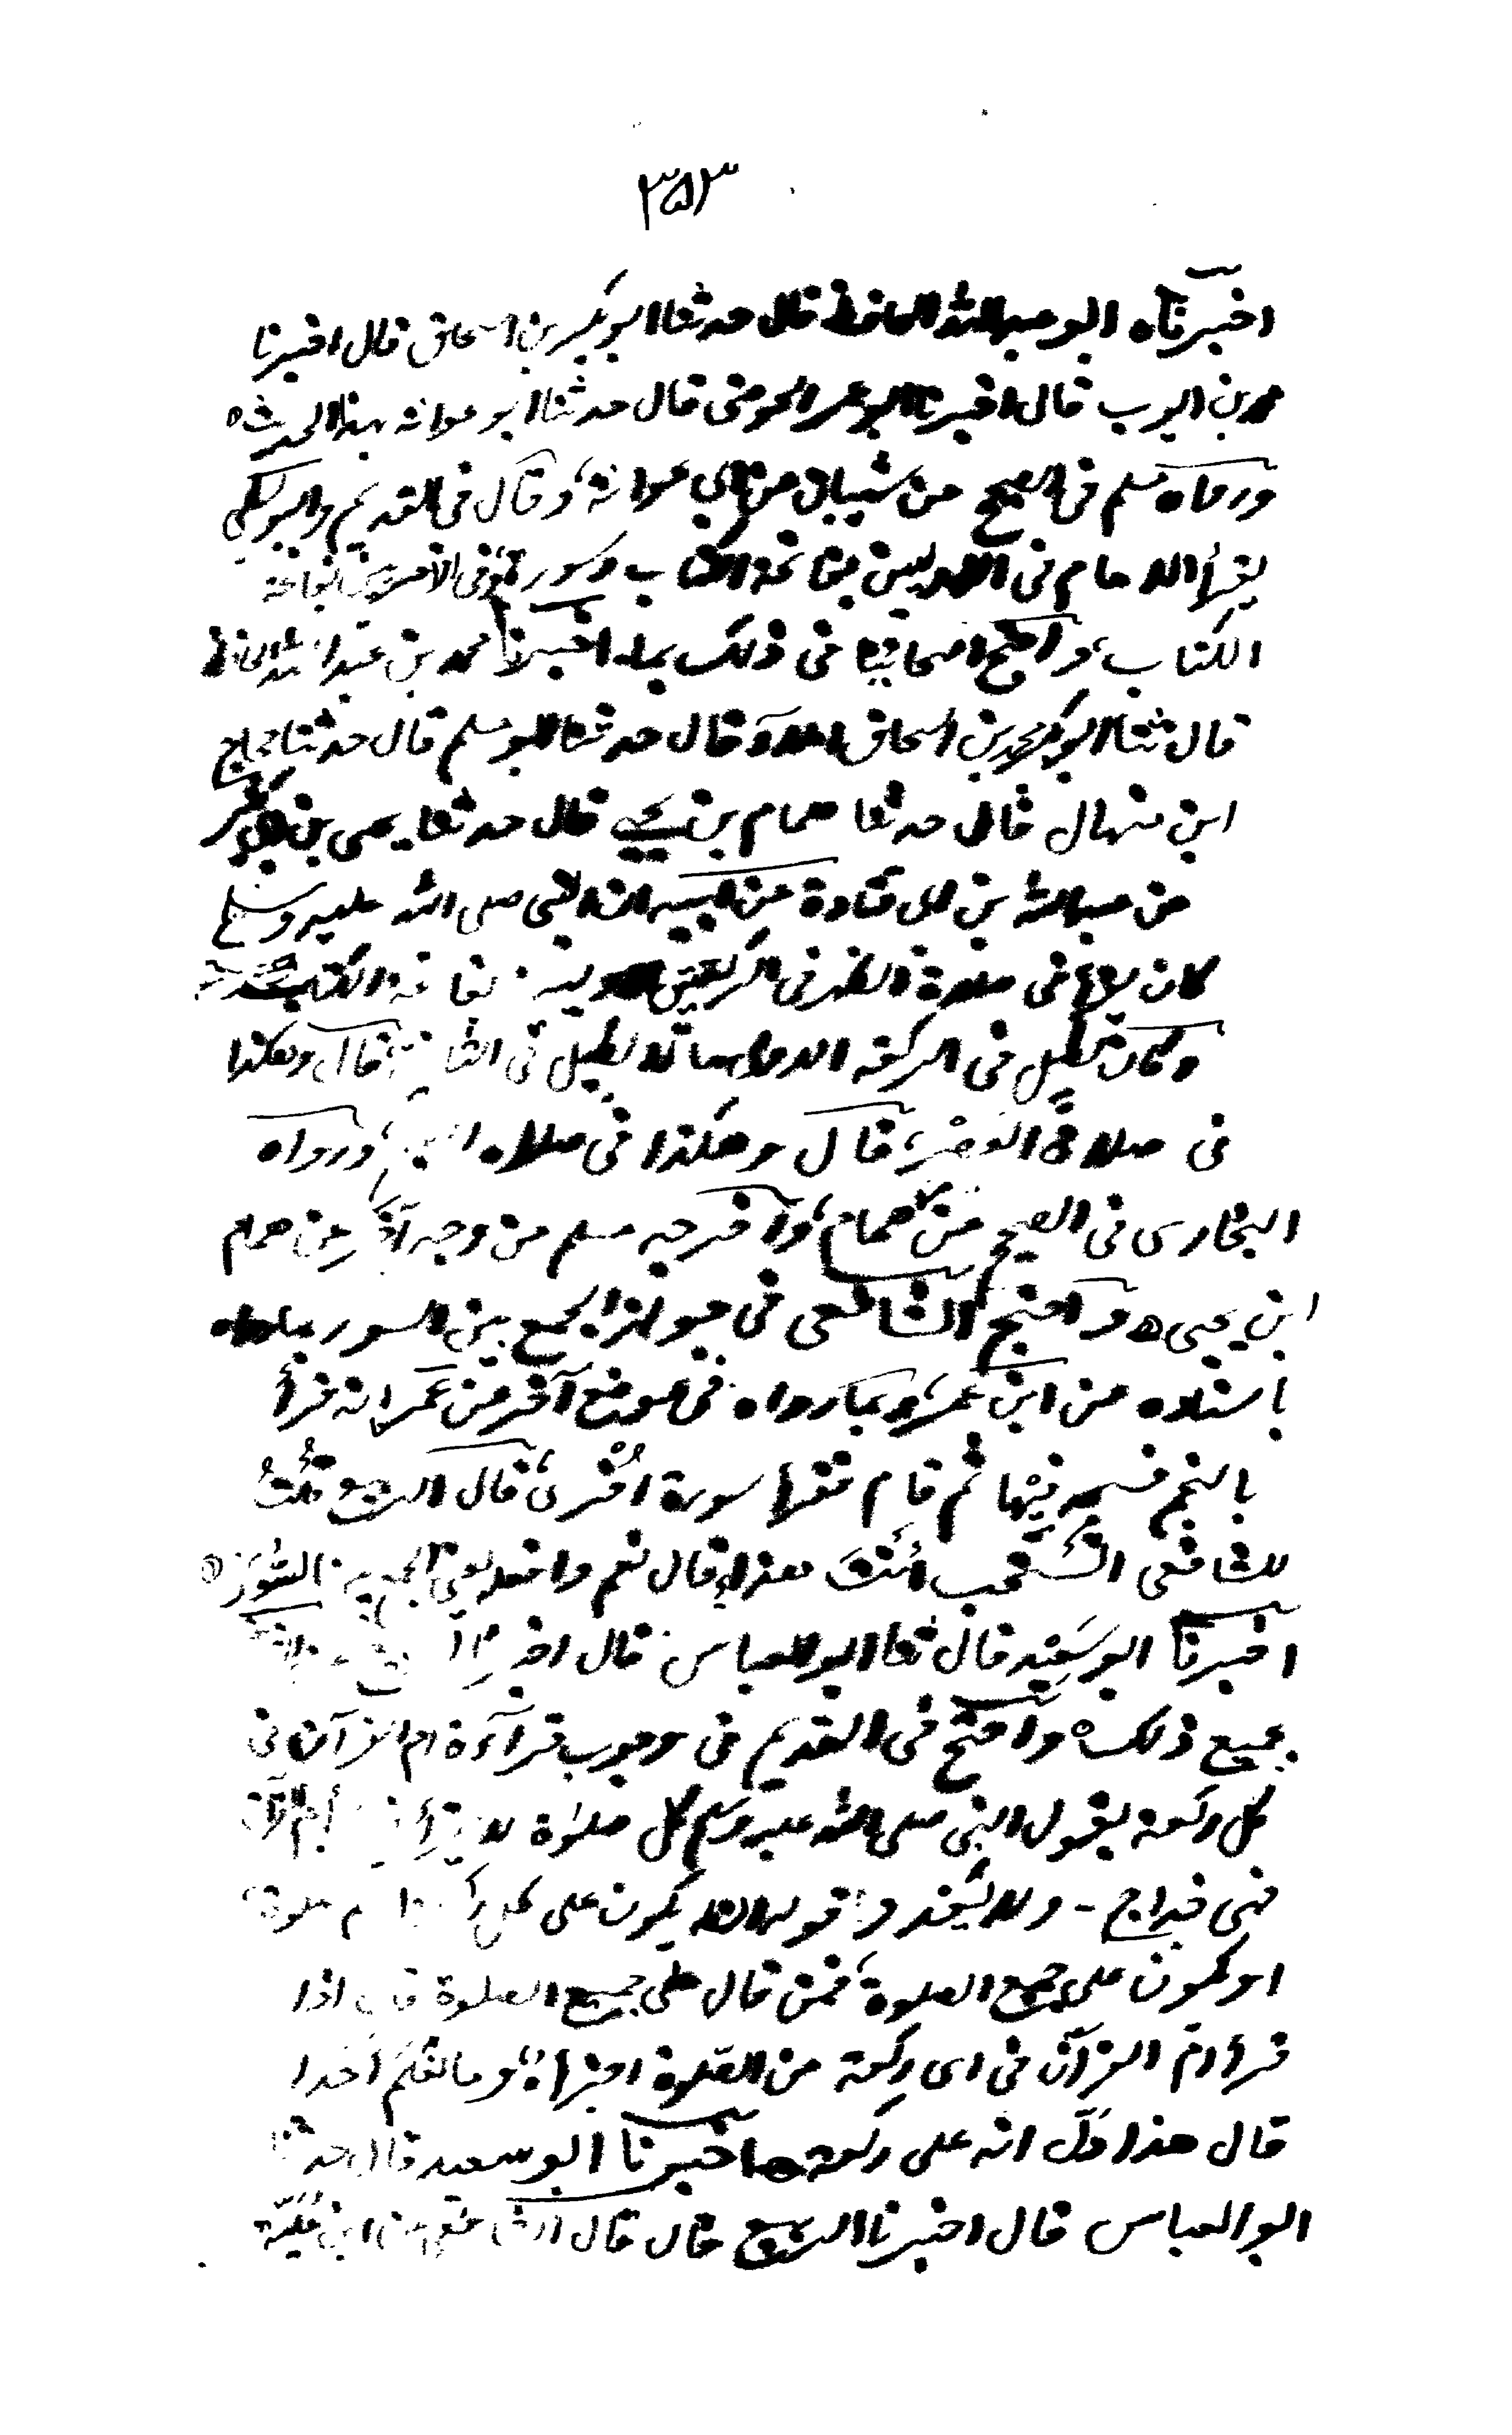 ٣٥٣
اخبرناه ابو عبدالله الحافظ قال حدثنا ابوبكر بن اسحاق قال اخبرنا
محمد بن ايوب قال اخبرنا ابو عمر الحوضى قال حدثنا ابو عوانة بهذا الحديث ه
ورواه مسلم فى الصحيح عن شيبان عن ابى عوانة، وقال فى القديم والبويطى
يقرأ الامام فى الاوليين بفاتحة الكتاب وسورة وفى الاخريين بفاتحة
الكتاب، واحتج اصحابنا فى ذلك بما اخبرنا محمد بن عبدالله الحافظ
قال ثنا ابوبكر محمد بن اسحاق املاءً قال حدثنا ابو مسلم قال حدثنا حجاج
ابن منهال قال حدثنا همام بن يحيى قال حدثنا يحيى بن ابى كثير
عن عبدالله بن ابى قتادة عن ابيه ان النبى صلى الله عليه وسلم
كان يقرأ فى صلاة الظهر فى الركعتين الاوليين بفاتحة الكتاب
وكان يطيل فى الركعة الاولى ما لا يطيل فى الثانية، قال وهكذا
فى صلاة العصر، قال وهكذا فى صلاة ورواه
البخارى فى الصحيح عن همام، واخرجه مسلم من وجه آخر عن همام
ابن يحيى ه واحتج الشافعى فى جواز الجمع بين السور بما رواه
باسناده عن ابن عمر، وبما رواه فى موضع آخر عن عمر انه قرأ
بالنجم فسجد فيها ثم قام فقرأ سورة اُخرى، قال الربيع قلتُ
للشافعى اتستحب انتَ هذا قال نعم وافعله يعنى الجمع بين السُّوَر ه
اخبرنا ابو سَعِيْد قال ثنا ابو العباس قال اخبرنا
جميع ذلك ه واحتج فى القديم فى وجوب قرآءة ام القرآن فى
كل ركعة بقول النبى صلى الله عليه وسلم كل صلوٰة لا يقرأ فيها بأم القرآن
فهى خداج - ولا يَعْدو قوله ان يكون على كل صلوة
او يكون على جميع الصلوة، فمن قال على جميع الصلوة قال اذا
قرأ امّ القرآن فى اى ركعة من الصّلوة اجزأه، وما نعلم احدا
قال هذا فدلّ انه على ركعة ه اخبرنا ابو سعيد قال حدثنا
ابو العباس قال اخبرنا الربيع قال قال الشافعى عن ابن عُلَيّة